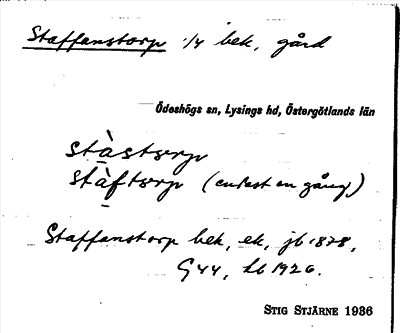 Staffanstorp 1/4 bek, gård
Ödeshögs sn, Lysings hd, Östergötlands län
stàstorp
stàftorp (endast en gång)
Staffanstorp bek, ek, jb 1878,
G44, hb 1926.
STIG STJÄRNE 1936